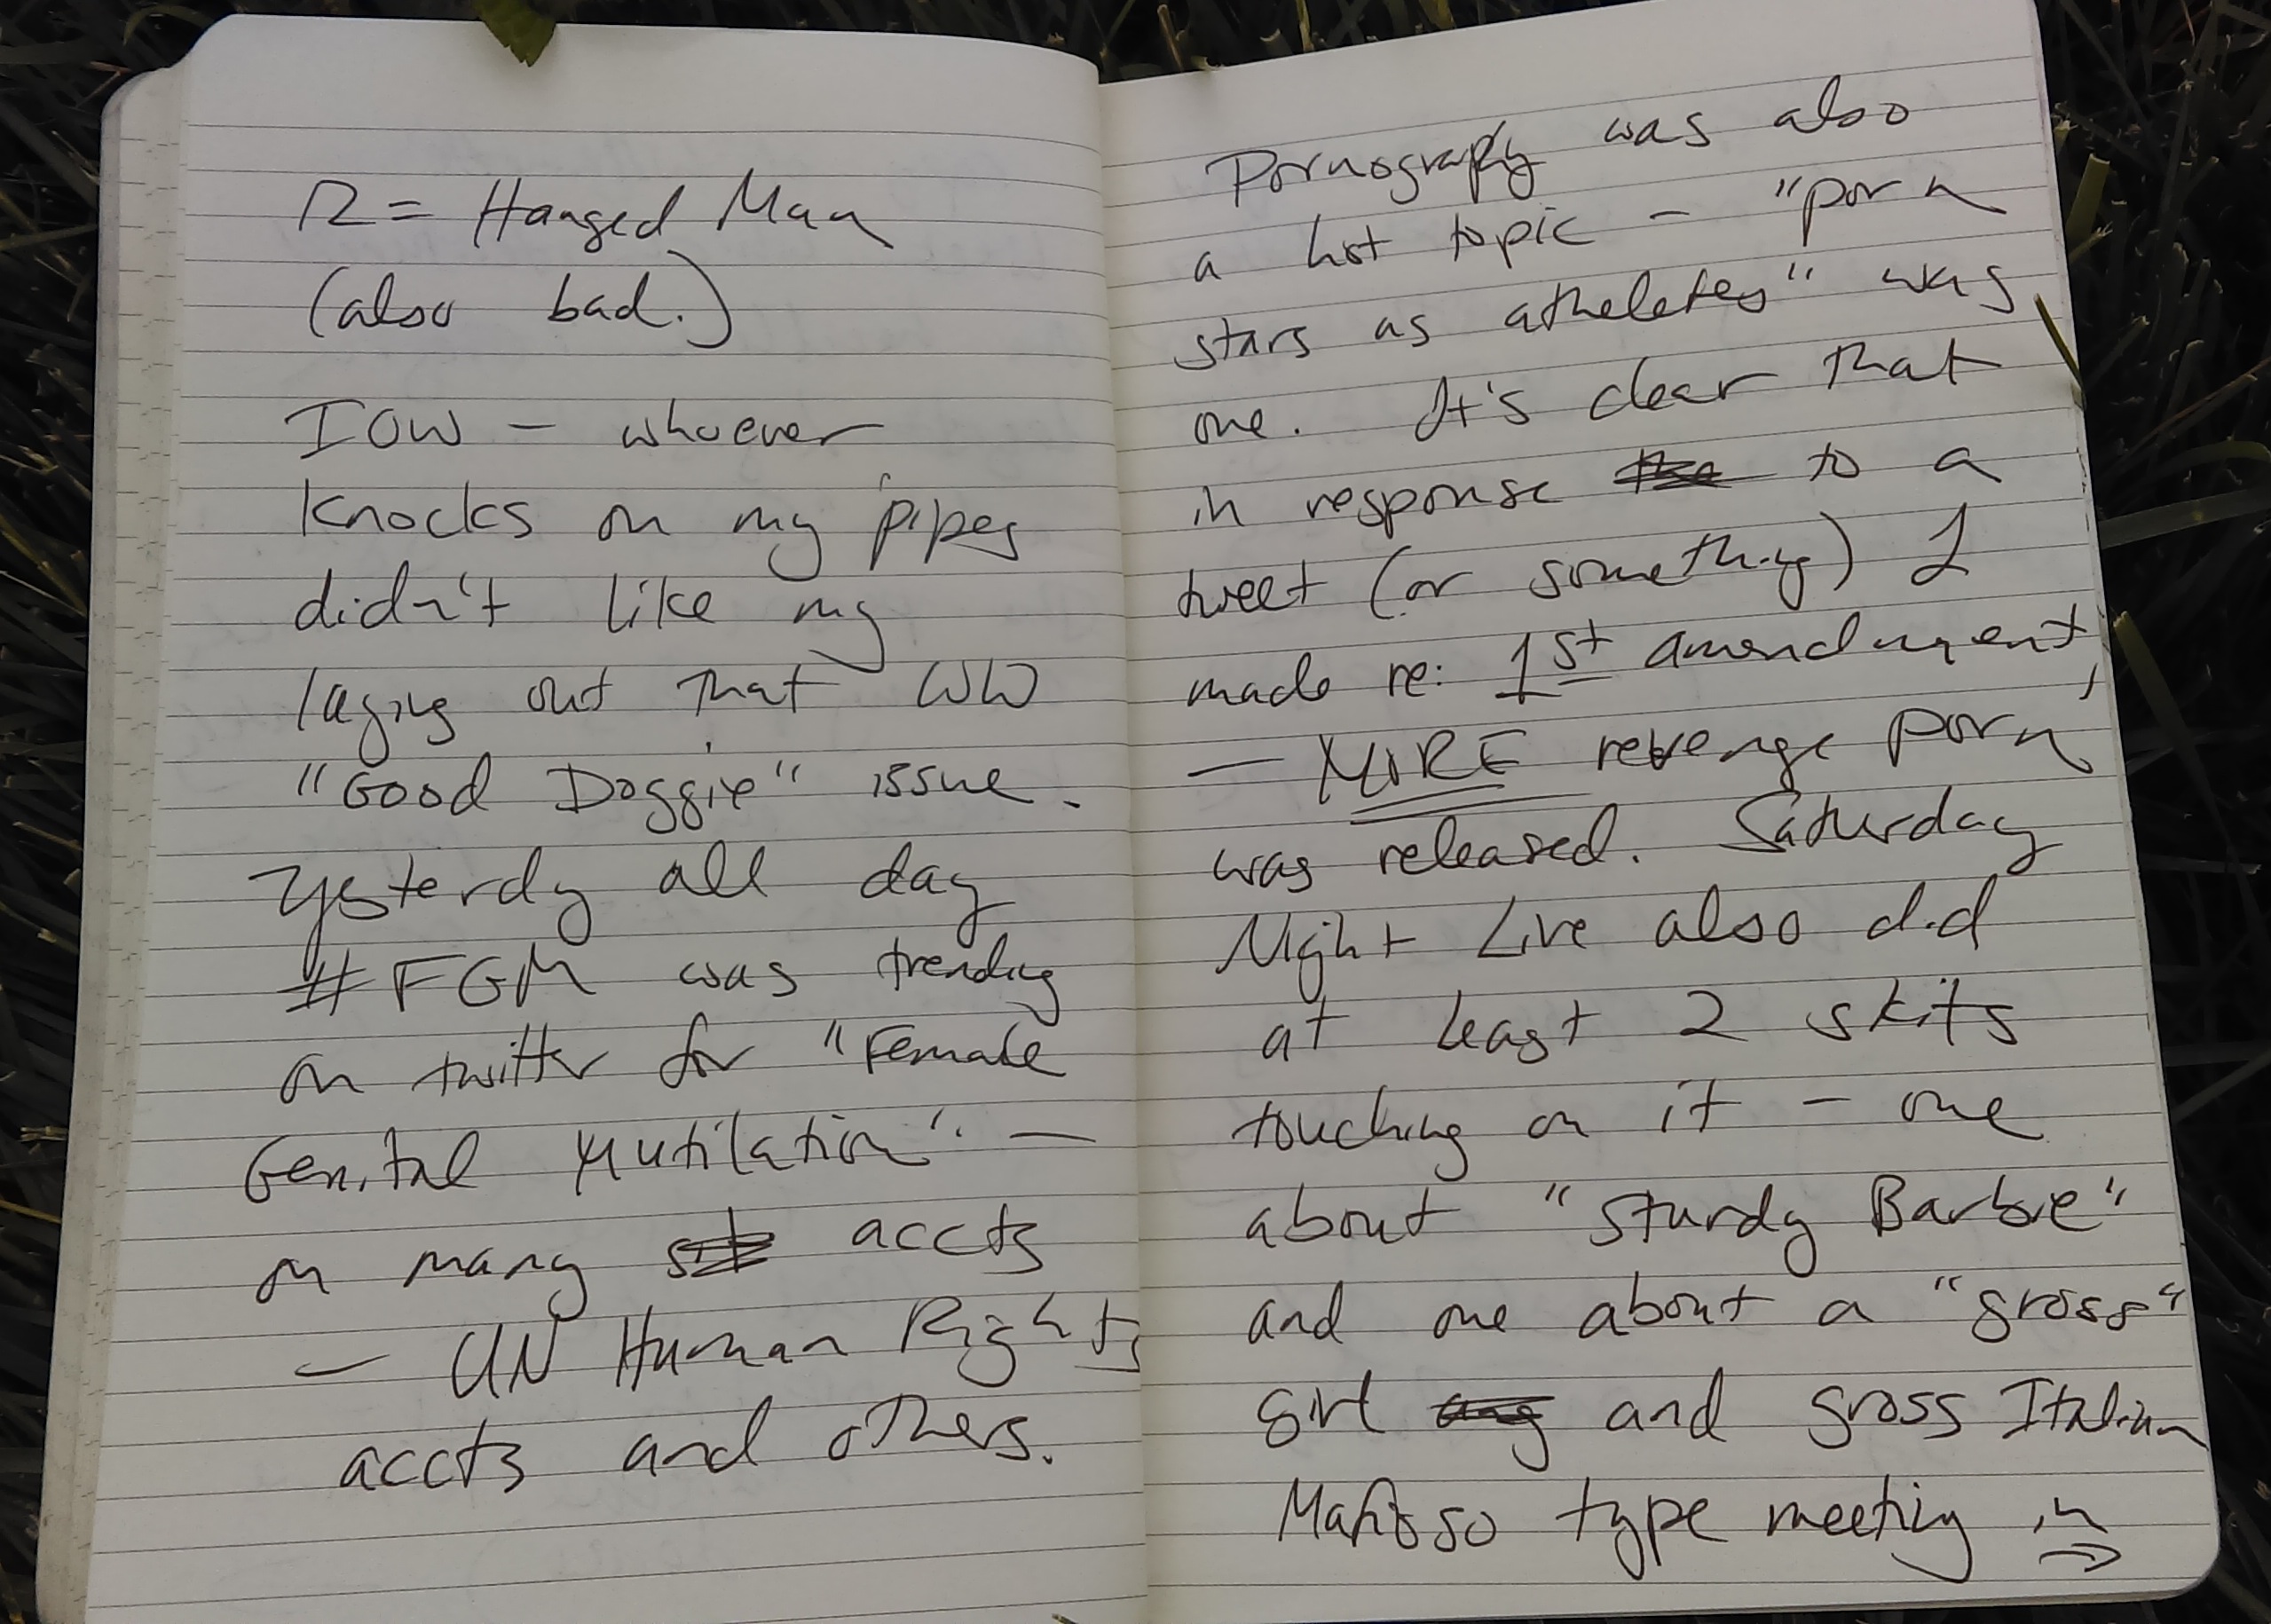 12 = Hanged Man
(also bad.)
IOW - whoever
knocks on my pipes
didn't like my
laying out that WW
"Good Doggie" issue.
Yesterdy all day
#FGM was trending
on twitter for "Female
Genital Mutilation". —
on many accts
— UN Human Rights
accts and others.
Pornograpy was also
a hot topic - "porn
stars as atheletes" was
one. It's clear that
in response to a
tweet (or something) I
made re: 1st amendment,
— MORE revenge porn
was released. Saturday
Night Live also did
at least 2 skits
touching on it - one
about "Sturdy Barbie"
and one about a "gross"
girl and gross Italian
Mafioso type meeting in